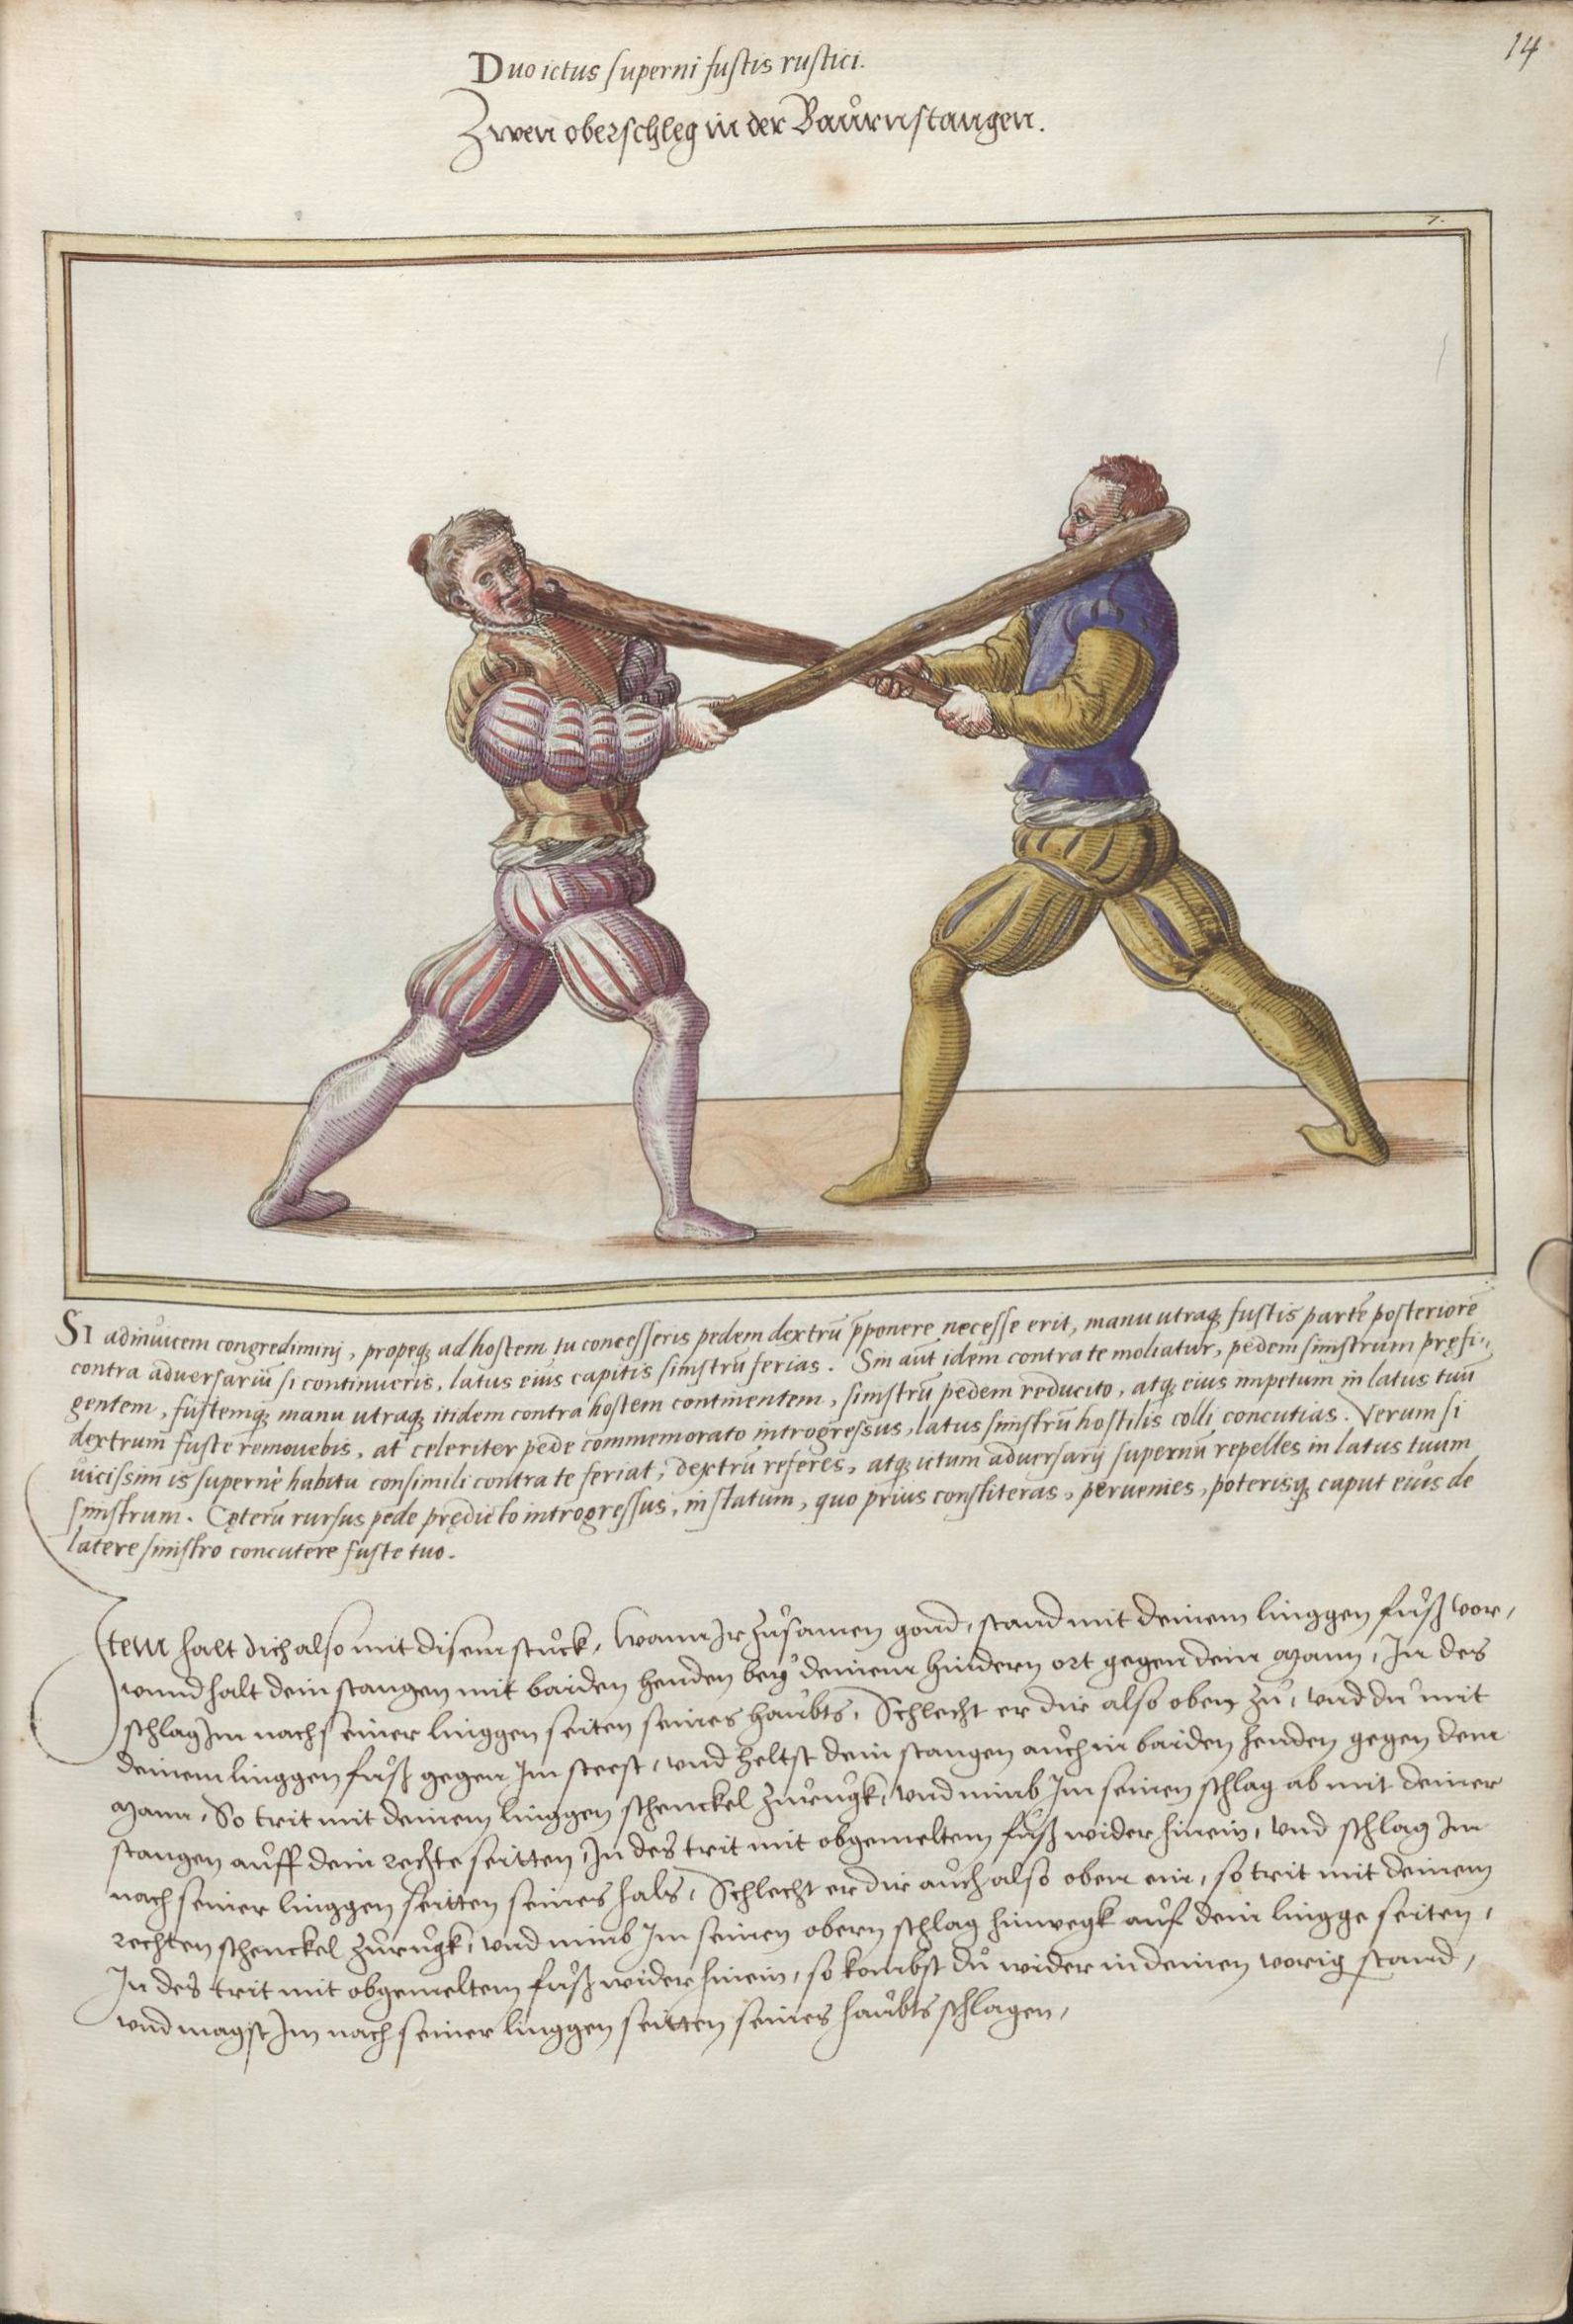 14
Duo ictus superni fustis rustici.
Zwen oberschleg in der Baůrnstangen.
7.
SI adinvicem congredimini, propeq; ad hostem tu concesseris pedem dextrũ p̄ponere necesse erit, manu utraq; fustis partẽ posteriorẽ
contra adversariũ si continueris, latus eius capitis sinistrũ ferias. Sin aũt idem contra te moliatur, pedem sinistrum pręfi-
gentem, fustemq; manu utraq; itidem contra hostem continentem, sinistrũ pedem reducito, atq; eius impetum in latus tuũ
dextrum fuste removebis, at celeriter pede commemorato introgressus, latus sinistrũ hostilis colli concutias. Verum si
vicissim is supernè habitu consimili contra te feriat, dextrũ referes, atq; ictum adversarij supernũ repelles in latus tuum
sinistrum. Cęterũ rursus pede prędicto introgressus, in statum, quo prius constiteras, pervenies, poterisq; caput eius de
latere sinistro concutere fuste tuo.
Item halt dich also mit disem stuckͦ, wann Ir zůsamen gond, stand mit deinem linggen fůß vor,
vnnd halt dein stangen mit baiden henden bey deinem hindern ort gegen dem Mann, In des
schlag Im nach seiner linggen seiten seines haubts, Schlecht er dir also oben zů, vnd du mit
deinem linggen fůß gegen Im steest, vnd heltst dein stangen auch in baiden henden gegen dem
Mann, So trit mit deinem linggen schenckel zůrugk, vnd nimb Im seinen schlag ab mit deiner
stangen auff dein rechte seitten, In des trit mit obgemeltem fůß wider hinein, vnd schlag Im
nach seiner linggen seitten seines hals, Schlecht er dir auch also oben ein, so trit mit deinem
rechten schenckel zůrugk, vnd nimb Im seinen obern schlag hinwegk auf dein lingge seiten,
In des trit mit obgemeltem fůß wider hinein, so kombst du wider in deinen vorig stand,
vnd magst Im nach seiner linggen seitten seines haubts schlagen,